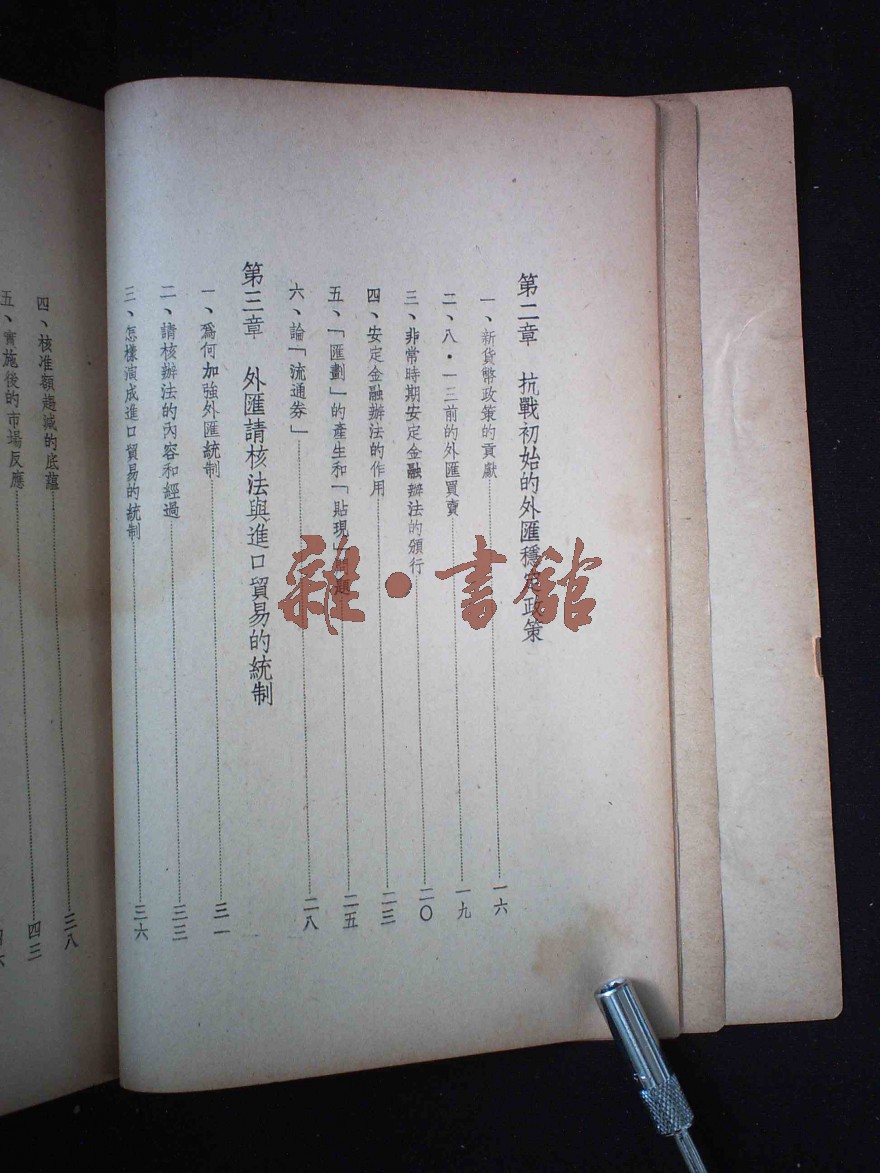 第二章　抗戰初始的外匯穩定政策
一、新貨幣政策的貢獻……一六
二、八・一三前的外匯買賣……一九
三、非常時期安定金融辦法的頒行……二〇
四、安定金融辦法的作用……二三
五、「匯劃」的產生和「貼現」問題……二五
六、論「流通券」……二八
第三章　外匯請核法與進口貿易的統制
一、爲何加強外匯統制……三一
二、請核辦法的內容和經過……三三
三、怎樣演成進口貿易的統制……三六
四、核准額趨減的底蘊……三八
五、實施後的市場反應……四三
雜・書館